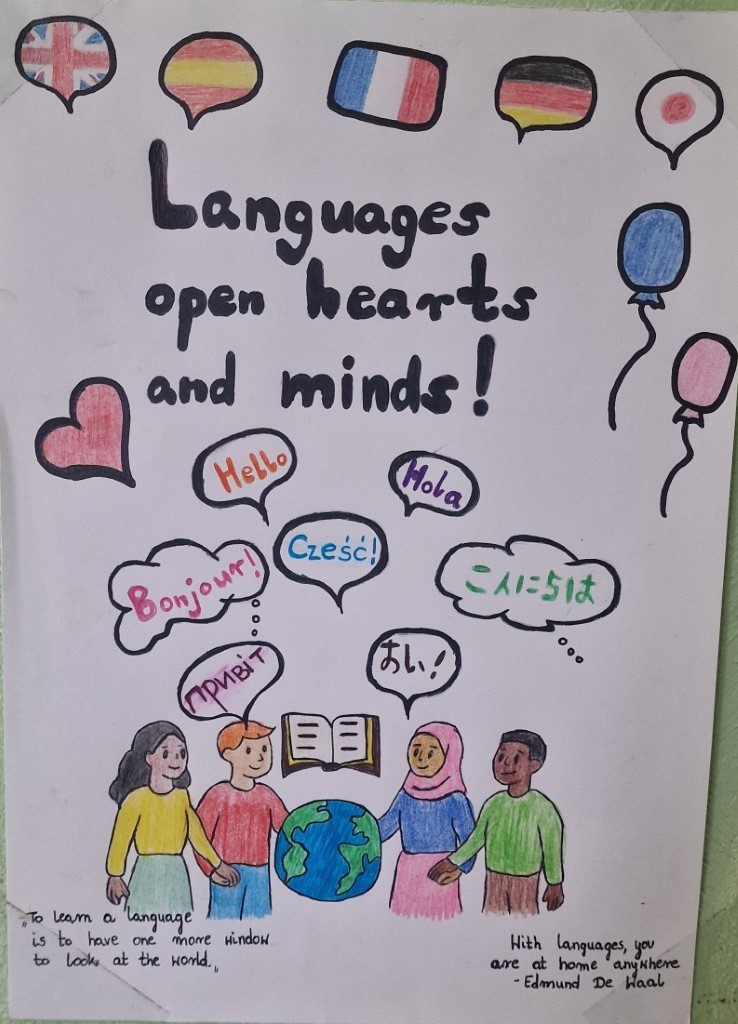 Languages
open hearts
and minds!
Hello
Hola
Cześć!
Bonjour!
こんにちは
привіт
おい!
„To learn a language
is to have one more window
to look at the world.„
With languages, you
are at home anywhere
- Edmund De Waal